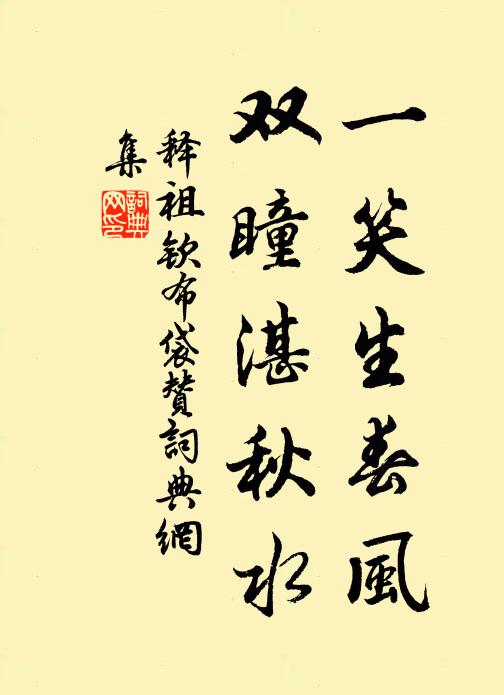 一笑生春風
双瞳湛秋水
释祖钦布袋赞詞典網
集
詞典
网印